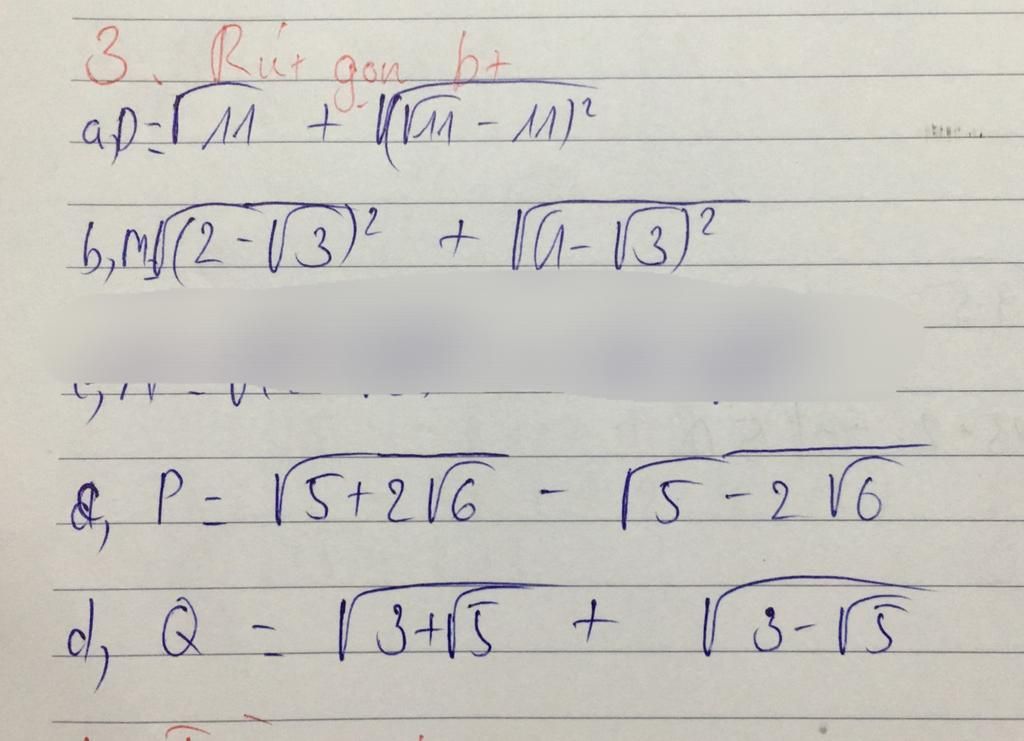 3. Rút gọn bt
a, D = √11 + √(√11 - 11)²
b, M = √(2 - √3)² + √(1 - √3)²
c, P = √5+2√6 - √5 - 2√6
d, Q = √3+√5 + √3-√5